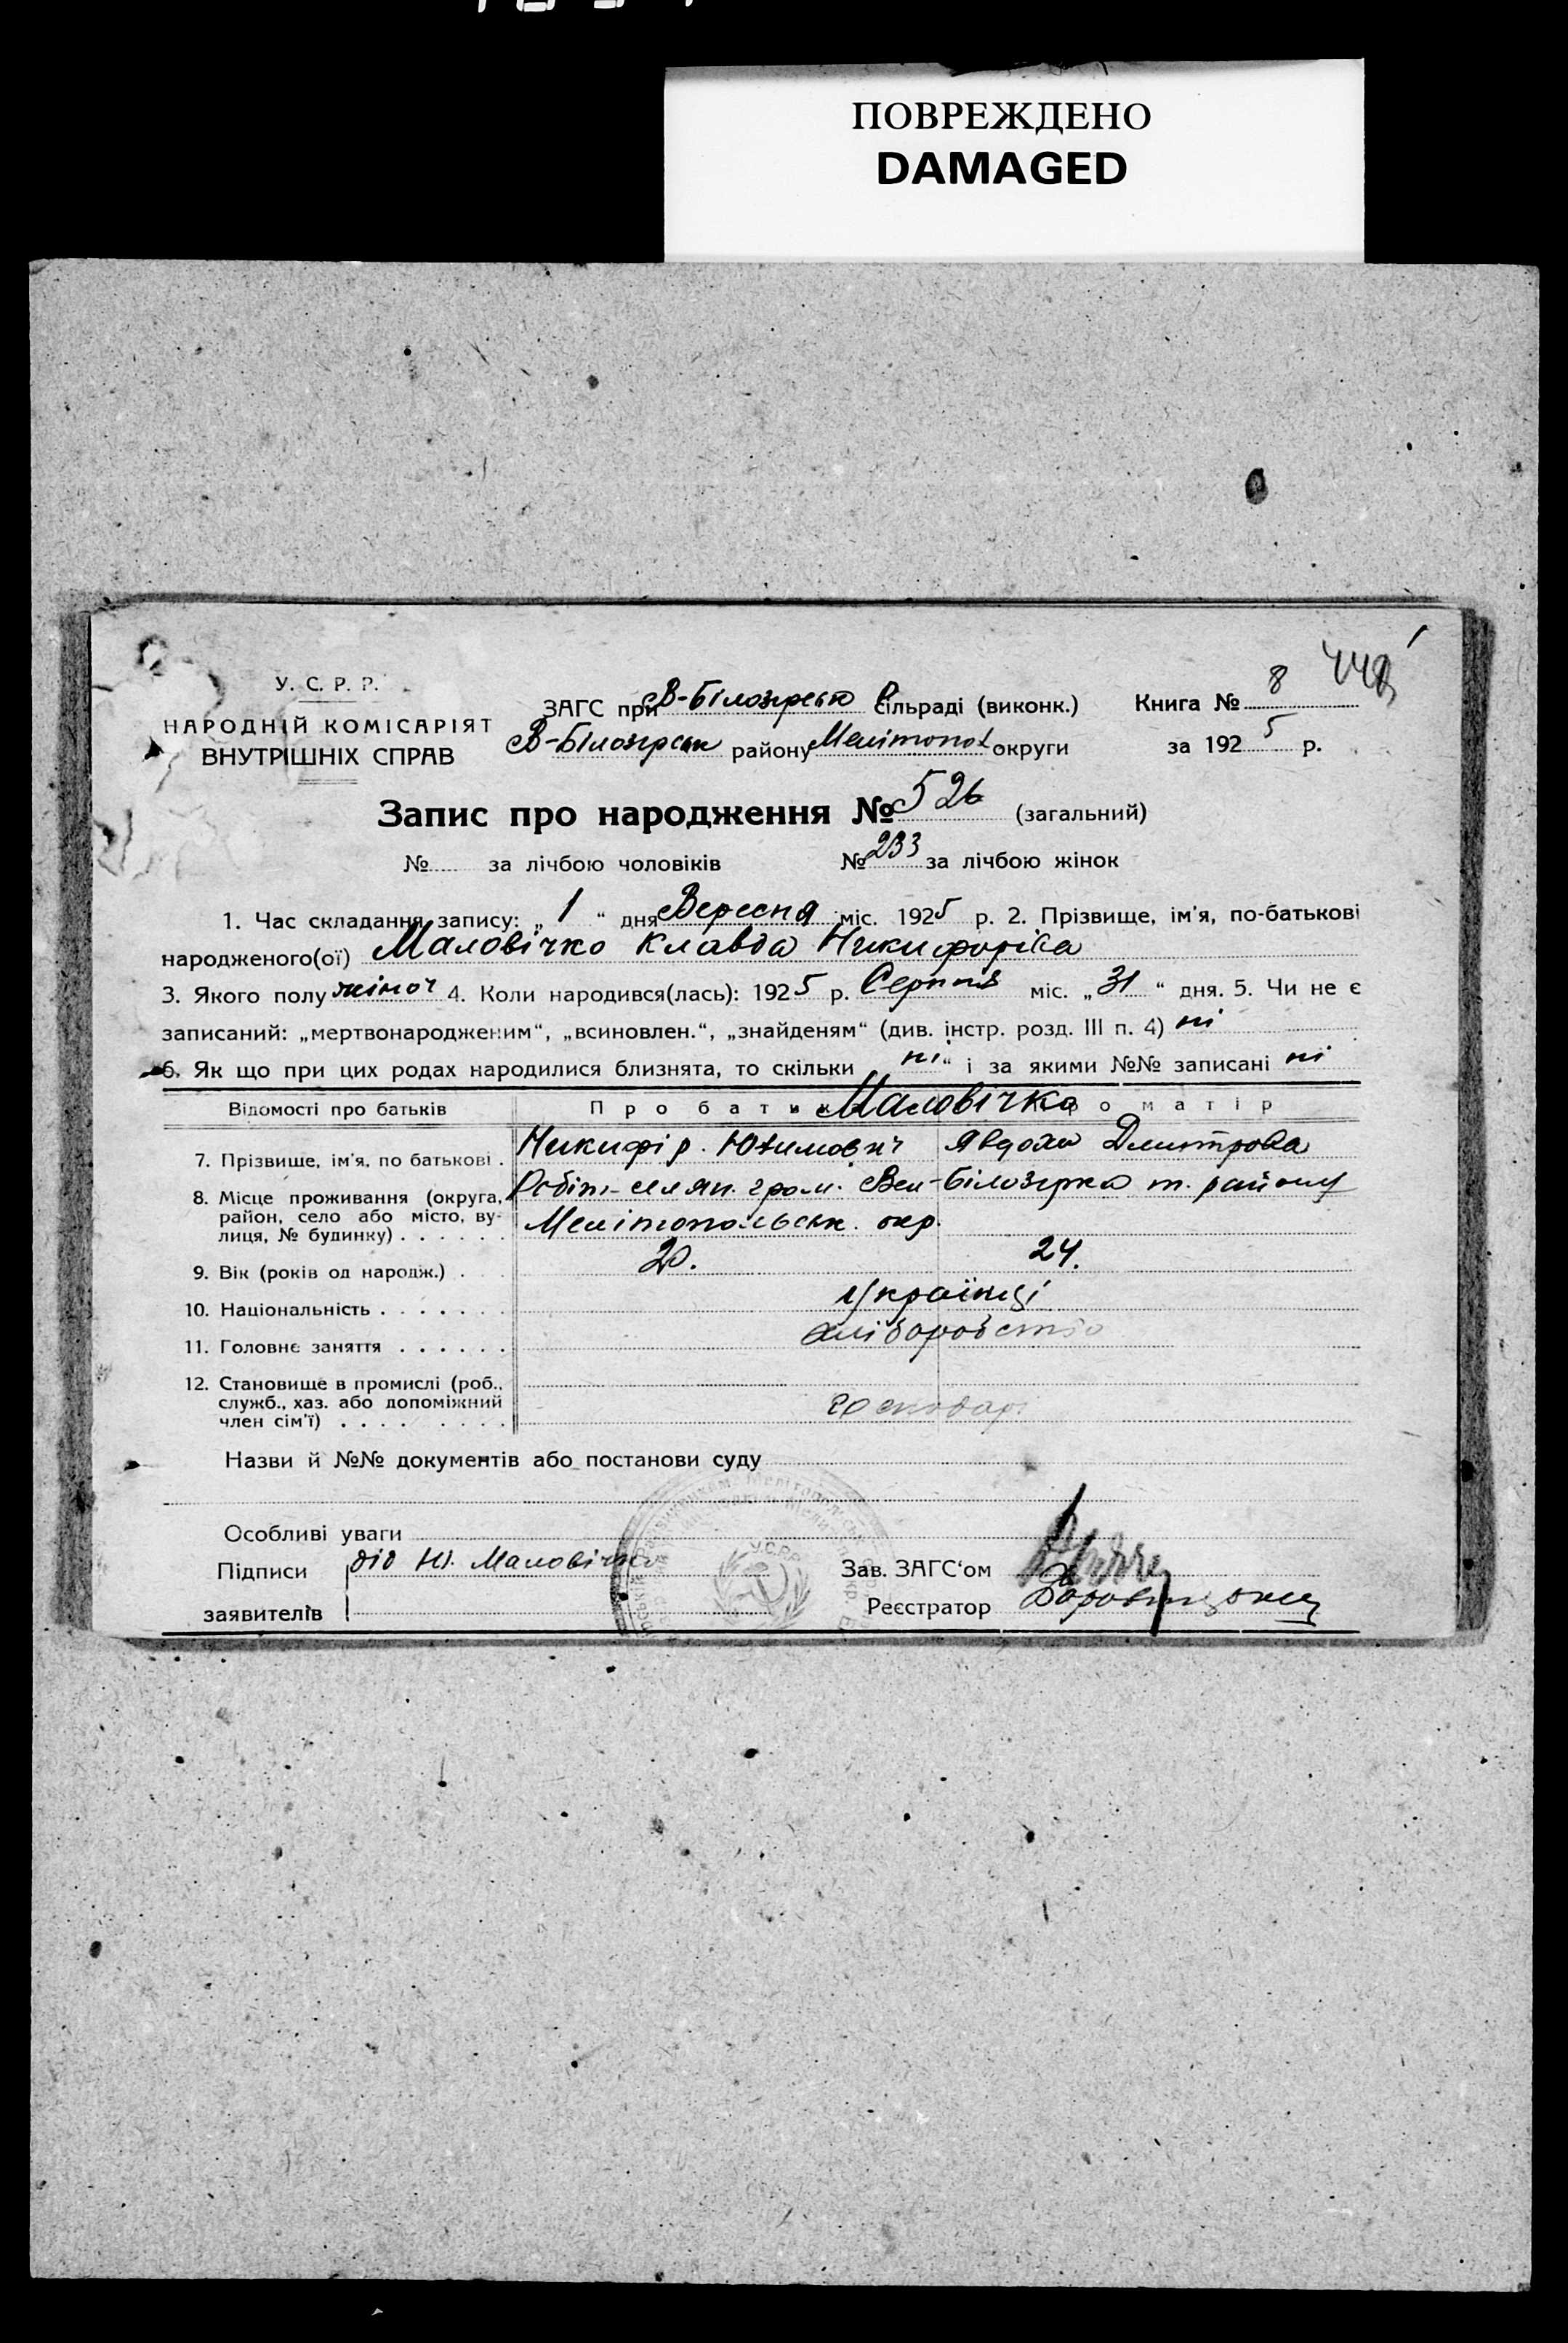 ПОВРЕЖДЕНО
DAMAGED
У. С. Р. Р.
НАРОДНІЙ КОМІСАРІЯТ
ВНУТРІШНІХ СПРАВ
ЗАГС при В-Білозірською Сільраді (виконк.)
В-Білозірськ району Мелітопол округи
Книга № 8
за 1925 р.
Запис про народження № 526 (загальний)
№ за лічбою чоловіків № 233 за лічбою жінок
1. Час складання запису: „ 1 “ дня Вересня міс. 1925 р. 2. Прізвище, ім'я, по-батькові
народженого(ої) Маловічко Клавда Никифорівa
3. Якого полу жіноч 4. Коли народився(лась): 1925 р. Серпня міс. „ 31 “ дня. 5. Чи не є
записаний: „мертвонародженим“, „всиновлен.“, „знайденям“ (див. інстр. розд. III п. 4) ні
6. Як що при цих родах народилися близнята, то скільки „ ні “ і за якими №№ записані ні
Відомості про батьків Про батька Маловічко Про матір
7. Прізвище, ім'я, по батькові . Никифір. Юхимович Явдоха Дмитрова
8. Місце проживання (округа, Робіт-селян. гром. Вел-Білозірка т. району
район, село або місто, ву-
лиця, № будинку) . . . . . . Мелітопольськ. окр.
9. Вік (років од народж.) . . . 20. 24.
10. Національність . . . . . . . Українці
11. Головне заняття . . . . . . Хліборобство
12. Становище в промислі (роб.,
служб., хаз. або допоміжний
член сім'ї) . . . . . . . . . господар.
Назви й №№ документів або постанови суду
Особливі уваги
Підписи дід Ю. Маловічко
заявителів
Зав. ЗАГС'ом
Реєстратор
У.С.Р.Р.